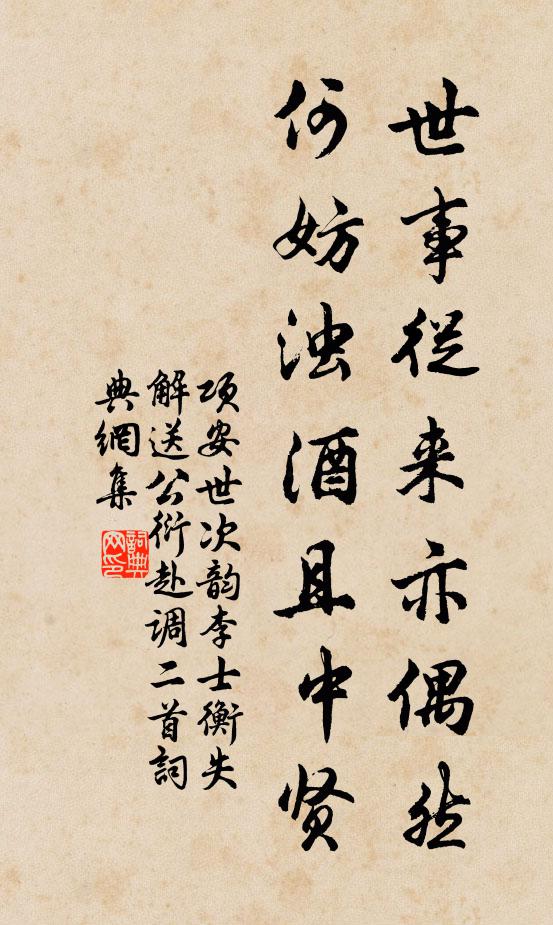 世事從来亦偶然
何妨浊酒且中贤
项安世次韵李士衡失
解送公衍赴调二首詞
典網集
詞典网印